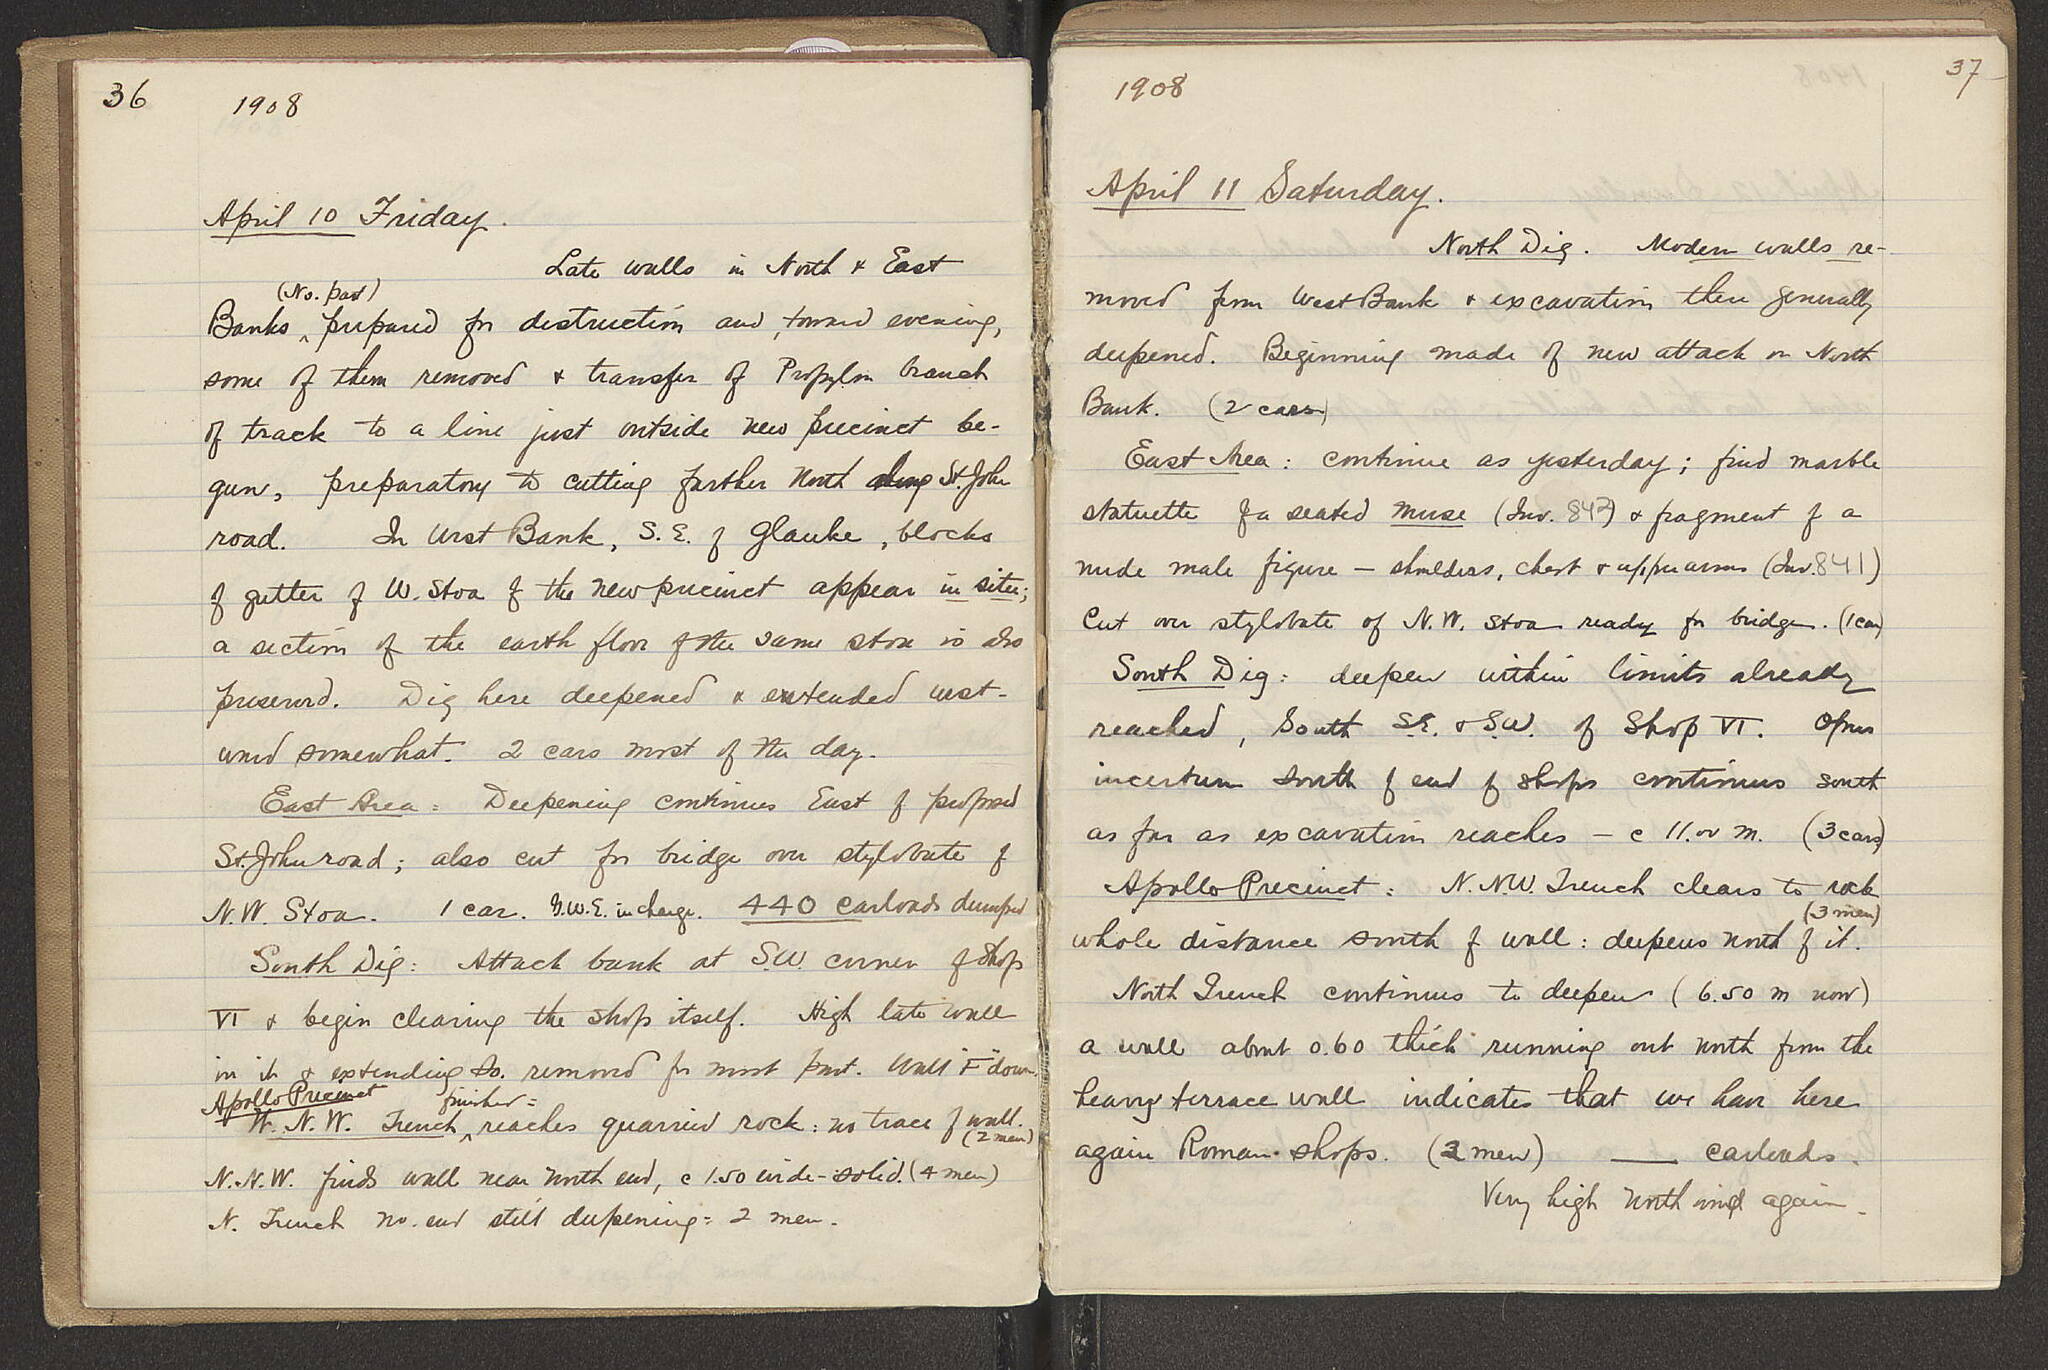 36
1908
April 10 Friday.
Late walls in North & East
(No. part)
Banks ^ prepared for destruction and, toward evening,
some of them removed & transfer of Propylon branch
of track to a line just outside new precinct be-
gun, preparatory to cutting further North along St. John
road. In West Bank, S.E. of Glauke, blocks
of gutter of W. Stoa of the new precinct appear in situ;
a section of the earth floor of the same stoa is also
preserved. Dig here deepened & extended west-
ward somewhat. 2 cars most of the day.
East Area: Deepening continues East of proposed
St. John road; also cut for bridge over stylobate of
N.W. Stoa. 1 car. G.W.E. in charge. 440 carloads dumped
South Dig: Attack bank at S.W. corner of Shop
VI & begin clearing the shop itself. High late wall
in it & extending So. removed for most part. Wall "F" down.
Apollo Precinct
finished =
W. N. W. Trench ^ reaches quarried rock: no trace of wall.
(2 men)
N.N.W. finds wall near north end, c 1.50 wide - solid. (4 men)
N. Trench no. end still deepening = 2 men.
37
1908
April 11 Saturday.
North Dig. Modern walls re-
moved from West Bank & excavation there generally
deepened. Beginning made of new attack on North
Bank. (2 cars)
East Area: continue as yesterday; find marble
statuette of a seated Muse (Inv. 842) & fragment of a
nude male figure - shoulders, chest & upper arms (Inv. 841)
Cut over stylobate of N.W. Stoa ready for bridge. (1 car)
South Dig: deepen within limits already
reached, South S.E. & S.W. of Shop VI. Opus
incertum south of end of shops continues south
as far as excavation reaches - c 11.00 m. (3 cars)
Apollo Precinct: N.N.W. Trench clears to rock
(3 men)
whole distance south of wall: deepens north of it.
North Trench continues to deepen (6.50 m now)
a wall about 0.60 thick running out north from the
heavy terrace wall indicates that we have here
again Roman shops. (2 men) ___ carloads.
Very high north wind again.